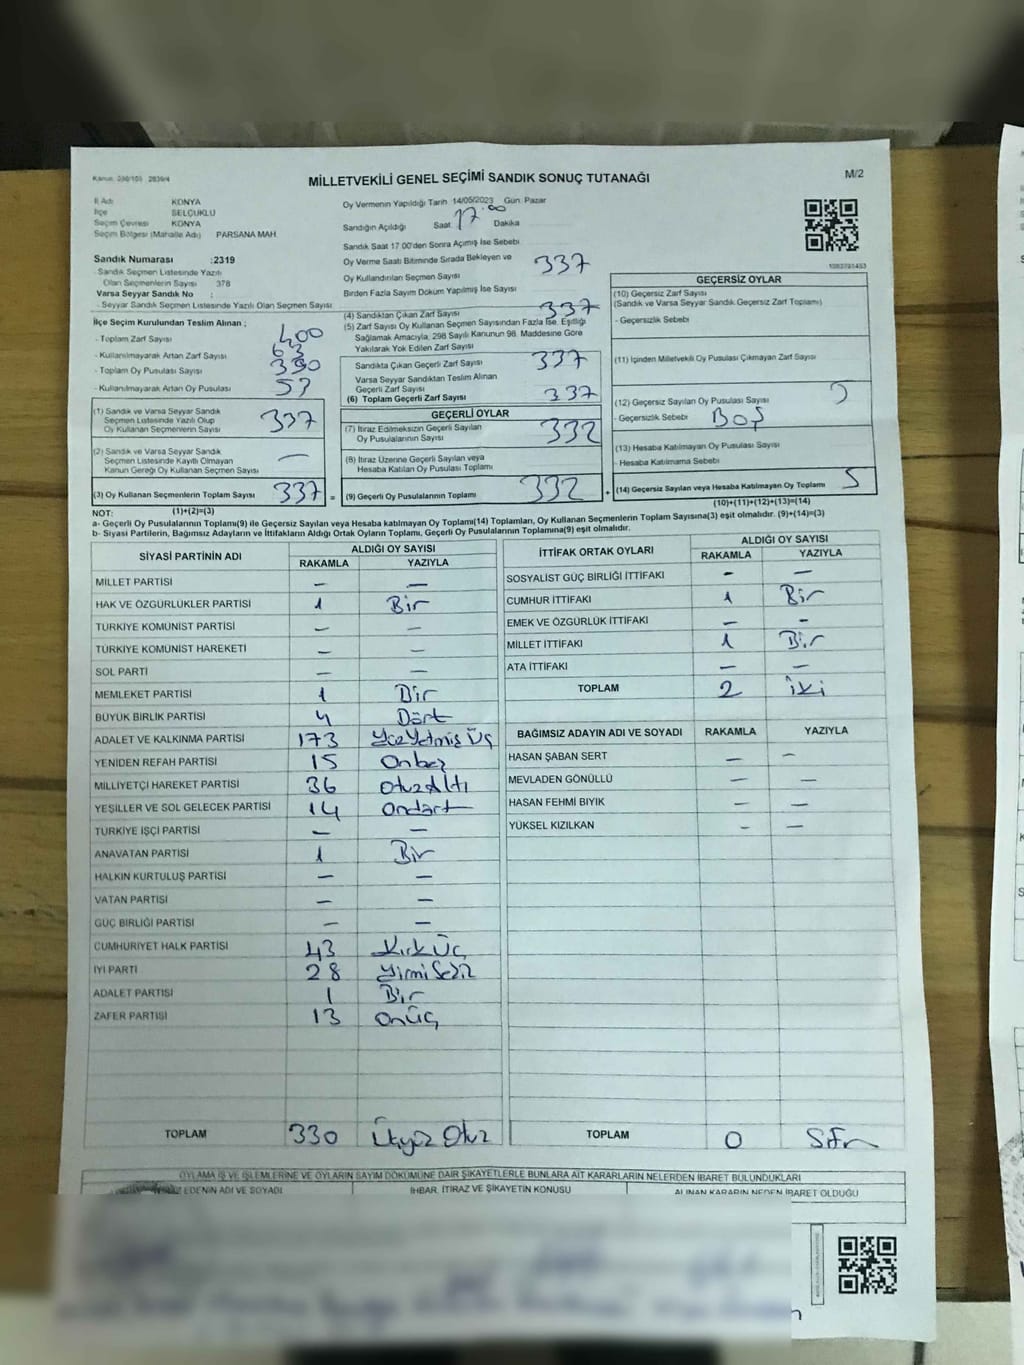 Kanun: 298/103 2839/4
MİLLETVEKİLİ GENEL SEÇİMİ SANDIK SONUÇ TUTANAĞI
M/2
İl Adı KONYA
İlçe SELÇUKLU
Seçim Çevresi KONYA
Seçim Bölgesi (Mahalle Adı) PARSANA MAH.
Sandık Numarası :2319
- Sandık Seçmen Listesinde Yazılı
Olan Seçmenlerin Sayısı 378
Varsa Seyyar Sandık No :
- Seyyar Sandık Seçmen Listesinde Yazılı Olan Seçmen Sayısı
İlçe Seçim Kurulundan Teslim Alınan ;
- Toplam Zarf Sayısı 400
- Kullanılmayarak Artan Zarf Sayısı 63
- Toplam Oy Pusulası Sayısı 390
- Kullanılmayarak Artan Oy Pusulası 53
(1) Sandık ve Varsa Seyyar Sandık
Seçmen Listesinde Yazılı Olup
Oy Kullanan Seçmenlerin Sayısı 337
(2) Sandık ve Varsa Seyyar Sandık
Seçmen Listesinde Kayıtlı Olmayan
Kanun Gereği Oy Kullanan Seçmen Sayısı —
(3) Oy Kullanan Seçmenlerin Toplam Sayısı 337 =
(1)+(2)=(3)
Oy Vermenin Yapıldığı Tarih 14/05/2023 Gün: Pazar
Sandığın Açıldığı Saat 17:00 Dakika
Sandık Saat 17:00'den Sonra Açılmış İse Sebebi
Oy Verme Saati Bitiminde Sırada Bekleyen ve
Oy Kullandırılan Seçmen Sayısı 337
Birden Fazla Sayım Döküm Yapılmış İse Sayısı
(4) Sandıktan Çıkan Zarf Sayısı 337
(5) Zarf Sayısı Oy Kullanan Seçmen Sayısından Fazla İse, Eşitliği
Sağlamak Amacıyla, 298 Sayılı Kanunun 98. Maddesine Göre
Yakılarak Yok Edilen Zarf Sayısı
Sandıkta Çıkan Geçerli Zarf Sayısı 337
Varsa Seyyar Sandıktan Teslim Alınan
Geçerli Zarf Sayısı
(6) Toplam Geçerli Zarf Sayısı 337
GEÇERLİ OYLAR
(7) İtiraz Edilmeksizin Geçerli Sayılan
Oy Pusulalarının Sayısı 332
(8) İtiraz Üzerine Geçerli Sayılan veya
Hesaba Katılan Oy Pusulası Toplamı
(9) Geçerli Oy Pusulalarının Toplamı 332 +
1083791453
GEÇERSİZ OYLAR
(10) Geçersiz Zarf Sayısı
(Sandık ve Varsa Seyyar Sandık Geçersiz Zarf Toplamı)
- Geçersizlik Sebebi
(11) İçinden Milletvekili Oy Pusulası Çıkmayan Zarf Sayısı
(12) Geçersiz Sayılan Oy Pusulası Sayısı 5
- Geçersizlik Sebebi BOŞ
(13) Hesaba Katılmayan Oy Pusulası Sayısı
- Hesaba Katılmama Sebebi
(14) Geçersiz Sayılan veya Hesaba Katılmayan Oy Toplamı 5
(10)+(11)+(12)+(13)=(14)
NOT:
a- Geçerli Oy Pusulalarının Toplamı(9) ile Geçersiz Sayılan veya Hesaba katılmayan Oy Toplamı(14) Toplamları, Oy Kullanan Seçmenlerin Toplam Sayısına(3) eşit olmalıdır. (9)+(14)=(3)
b- Siyasi Partilerin, Bağımsız Adayların ve İttifakların Aldığı Ortak Oyların Toplamı, Geçerli Oy Pusulalarının Toplamına(9) eşit olmalıdır.
SİYASİ PARTİNİN ADI ALDIĞI OY SAYISI
RAKAMLA YAZIYLA
MİLLET PARTİSİ — —
HAK VE ÖZGÜRLÜKLER PARTİSİ 1 Bir
TÜRKİYE KOMÜNİST PARTİSİ — —
TÜRKİYE KOMÜNİST HAREKETİ — —
SOL PARTİ — —
MEMLEKET PARTİSİ 1 Bir
BÜYÜK BİRLİK PARTİSİ 4 Dört
ADALET VE KALKINMA PARTİSİ 173 Yüz Yetmiş Üç
YENİDEN REFAH PARTİSİ 15 Onbeş
MİLLİYETÇİ HAREKET PARTİSİ 36 Otuz Altı
YEŞİLLER VE SOL GELECEK PARTİSİ 14 Ondört
TÜRKİYE İŞÇİ PARTİSİ — —
ANAVATAN PARTİSİ 1 Bir
HALKIN KURTULUŞ PARTİSİ — —
VATAN PARTİSİ — —
GÜÇ BİRLİĞİ PARTİSİ — —
CUMHURİYET HALK PARTİSİ 43 Kırk Üç
İYİ PARTİ 28 Yirmi Sekiz
ADALET PARTİSİ 1 Bir
ZAFER PARTİSİ 13 Onüç
TOPLAM 330 Üçyüz Otuz
İTTİFAK ORTAK OYLARI ALDIĞI OY SAYISI
RAKAMLA YAZIYLA
SOSYALİST GÜÇ BİRLİĞİ İTTİFAKI — —
CUMHUR İTTİFAKI 1 Bir
EMEK VE ÖZGÜRLÜK İTTİFAKI — —
MİLLET İTTİFAKI 1 Bir
ATA İTTİFAKI — —
TOPLAM 2 İki
BAĞIMSIZ ADAYIN ADI VE SOYADI RAKAMLA YAZIYLA
HASAN ŞABAN SERT — —
MEVLADEN GÖNÜLLÜ — —
HASAN FEHMİ BIYIK — —
YÜKSEL KIZILKAN — —
TOPLAM 0 Sıfır
OYLAMA İŞ VE İŞLEMLERİNE VE OYLARIN SAYIM DÖKÜMÜNE DAİR ŞİKAYETLERLE BUNLARA AİT KARARLARIN NELERDEN İBARET BULUNDUKLARI
EDENİN ADI VE SOYADI İHBAR, İTİRAZ VE ŞİKAYETİN KONUSU ALINAN KARARIN NEDEN İBARET OLDUĞU